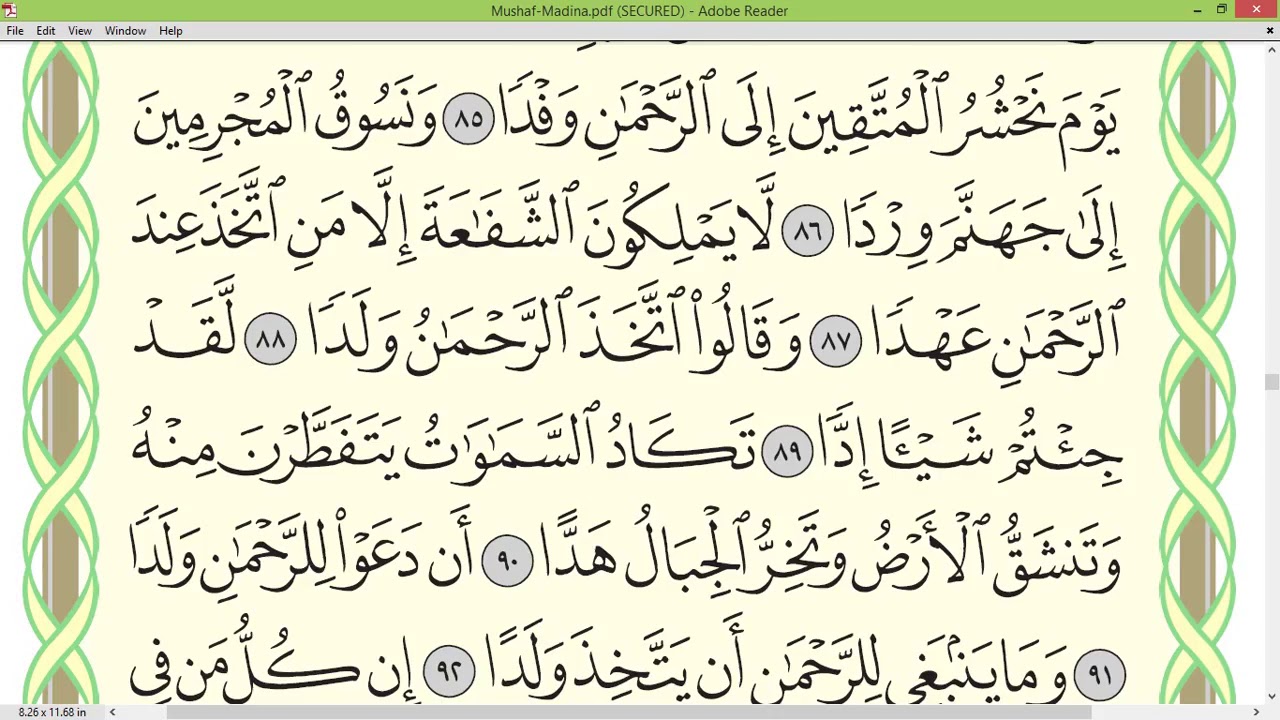 Mushaf-Madina.pdf (SECURED) - Adobe Reader
File Edit View Window Help
يَوْمَ نَحْشُرُ ٱلْمُتَّقِينَ إِلَى ٱلرَّحْمَـٰنِ وَفْدًا ٨٥ وَنَسُوقُ ٱلْمُجْرِمِينَ
إِلَىٰ جَهَنَّمَ وِرْدًا ٨٦ لَّا يَمْلِكُونَ ٱلشَّفَـٰعَةَ إِلَّا مَنِ ٱتَّخَذَ عِندَ
ٱلرَّحْمَـٰنِ عَهْدًا ٨٧ وَقَالُوا۟ ٱتَّخَذَ ٱلرَّحْمَـٰنُ وَلَدًا ٨٨ لَّقَدْ
جِئْتُمْ شَيْـًٔا إِدًّا ٨٩ تَكَادُ ٱلسَّمَـٰوَٰتُ يَتَفَطَّرْنَ مِنْهُ
وَتَنشَقُّ ٱلْأَرْضُ وَتَخِرُّ ٱلْجِبَالُ هَدًّا ٩٠ أَن دَعَوْا۟ لِلرَّحْمَـٰنِ وَلَدًا
٩١ وَمَا يَنۢبَغِى لِلرَّحْمَـٰنِ أَن يَتَّخِذَ وَلَدًا ٩٢ إِن كُلُّ مَن فِى
8.26 x 11.68 in